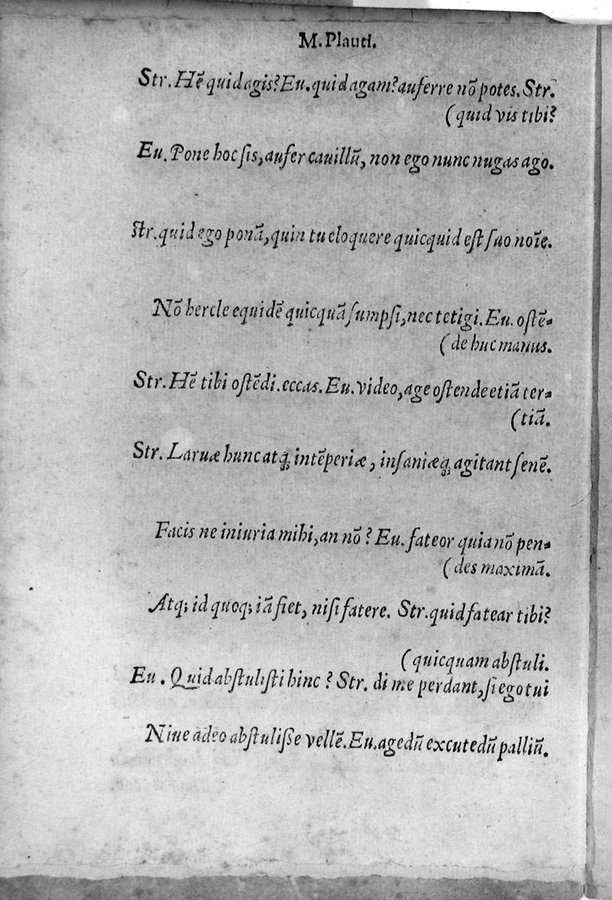 M. Plauti.
Str. Hē quid agis? Eu. quid agam? auferre nō potes. Str.
(quid vis tibi?
Eu. Pone hoc sis, aufer cauillū, non ego nunc nugas ago.
Str. quid ego ponā, quin tu eloquere quicquid est suo noīe.
Nō hercle equidē quicquā sumpsi, nec tetigi. Eu. ostē-
(de huc manus.
Str. Hē tibi ostēdi. eccas. Eu. video, age ostende etiā ter-
(tiā.
Str. Laruæ hunc atq; intēperiæ, insaniæq; agitant senē.
Facis ne iniuria mihi, an nō? Eu. fateor quia nō pen-
(des maximā.
Atq; id quoq; iā fiet, nisi fatere. Str. quid fatear tibi?
(quicquam abstuli.
Eu. Quid abstulisti hinc? Str. di me perdant, si ego tui
Niue adeo abstulisse vellē. Eu. agedū excutedū palliū.